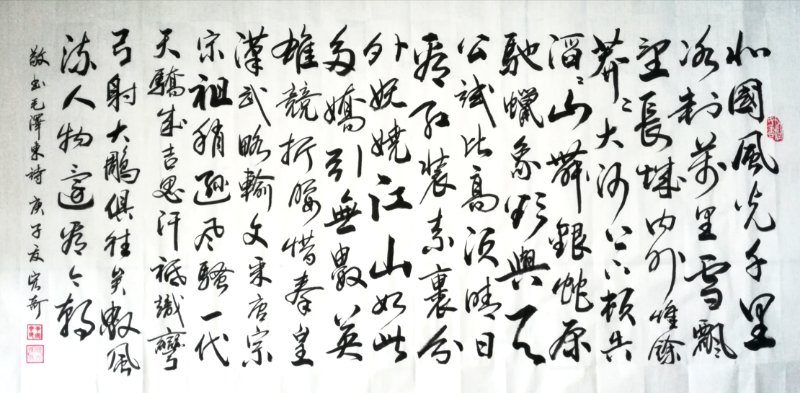 北國風光千里
冰封萬里雪飄
望長城内外惟餘
莽〻大河上下頓失
滔〻山舞銀蛇原
馳蠟象欲與天
公試比高須晴日
看紅裝素裹分
外妖嬈江山如此
多嬌引無數英
雄競折腰惜秦皇
漢武略輸文采唐宗
宋祖稍遜風騷一代
天驕成吉思汗祗識彎
弓射大鵰俱往矣數風
流人物還看今朝
敬書毛澤東詩庚子夏宏